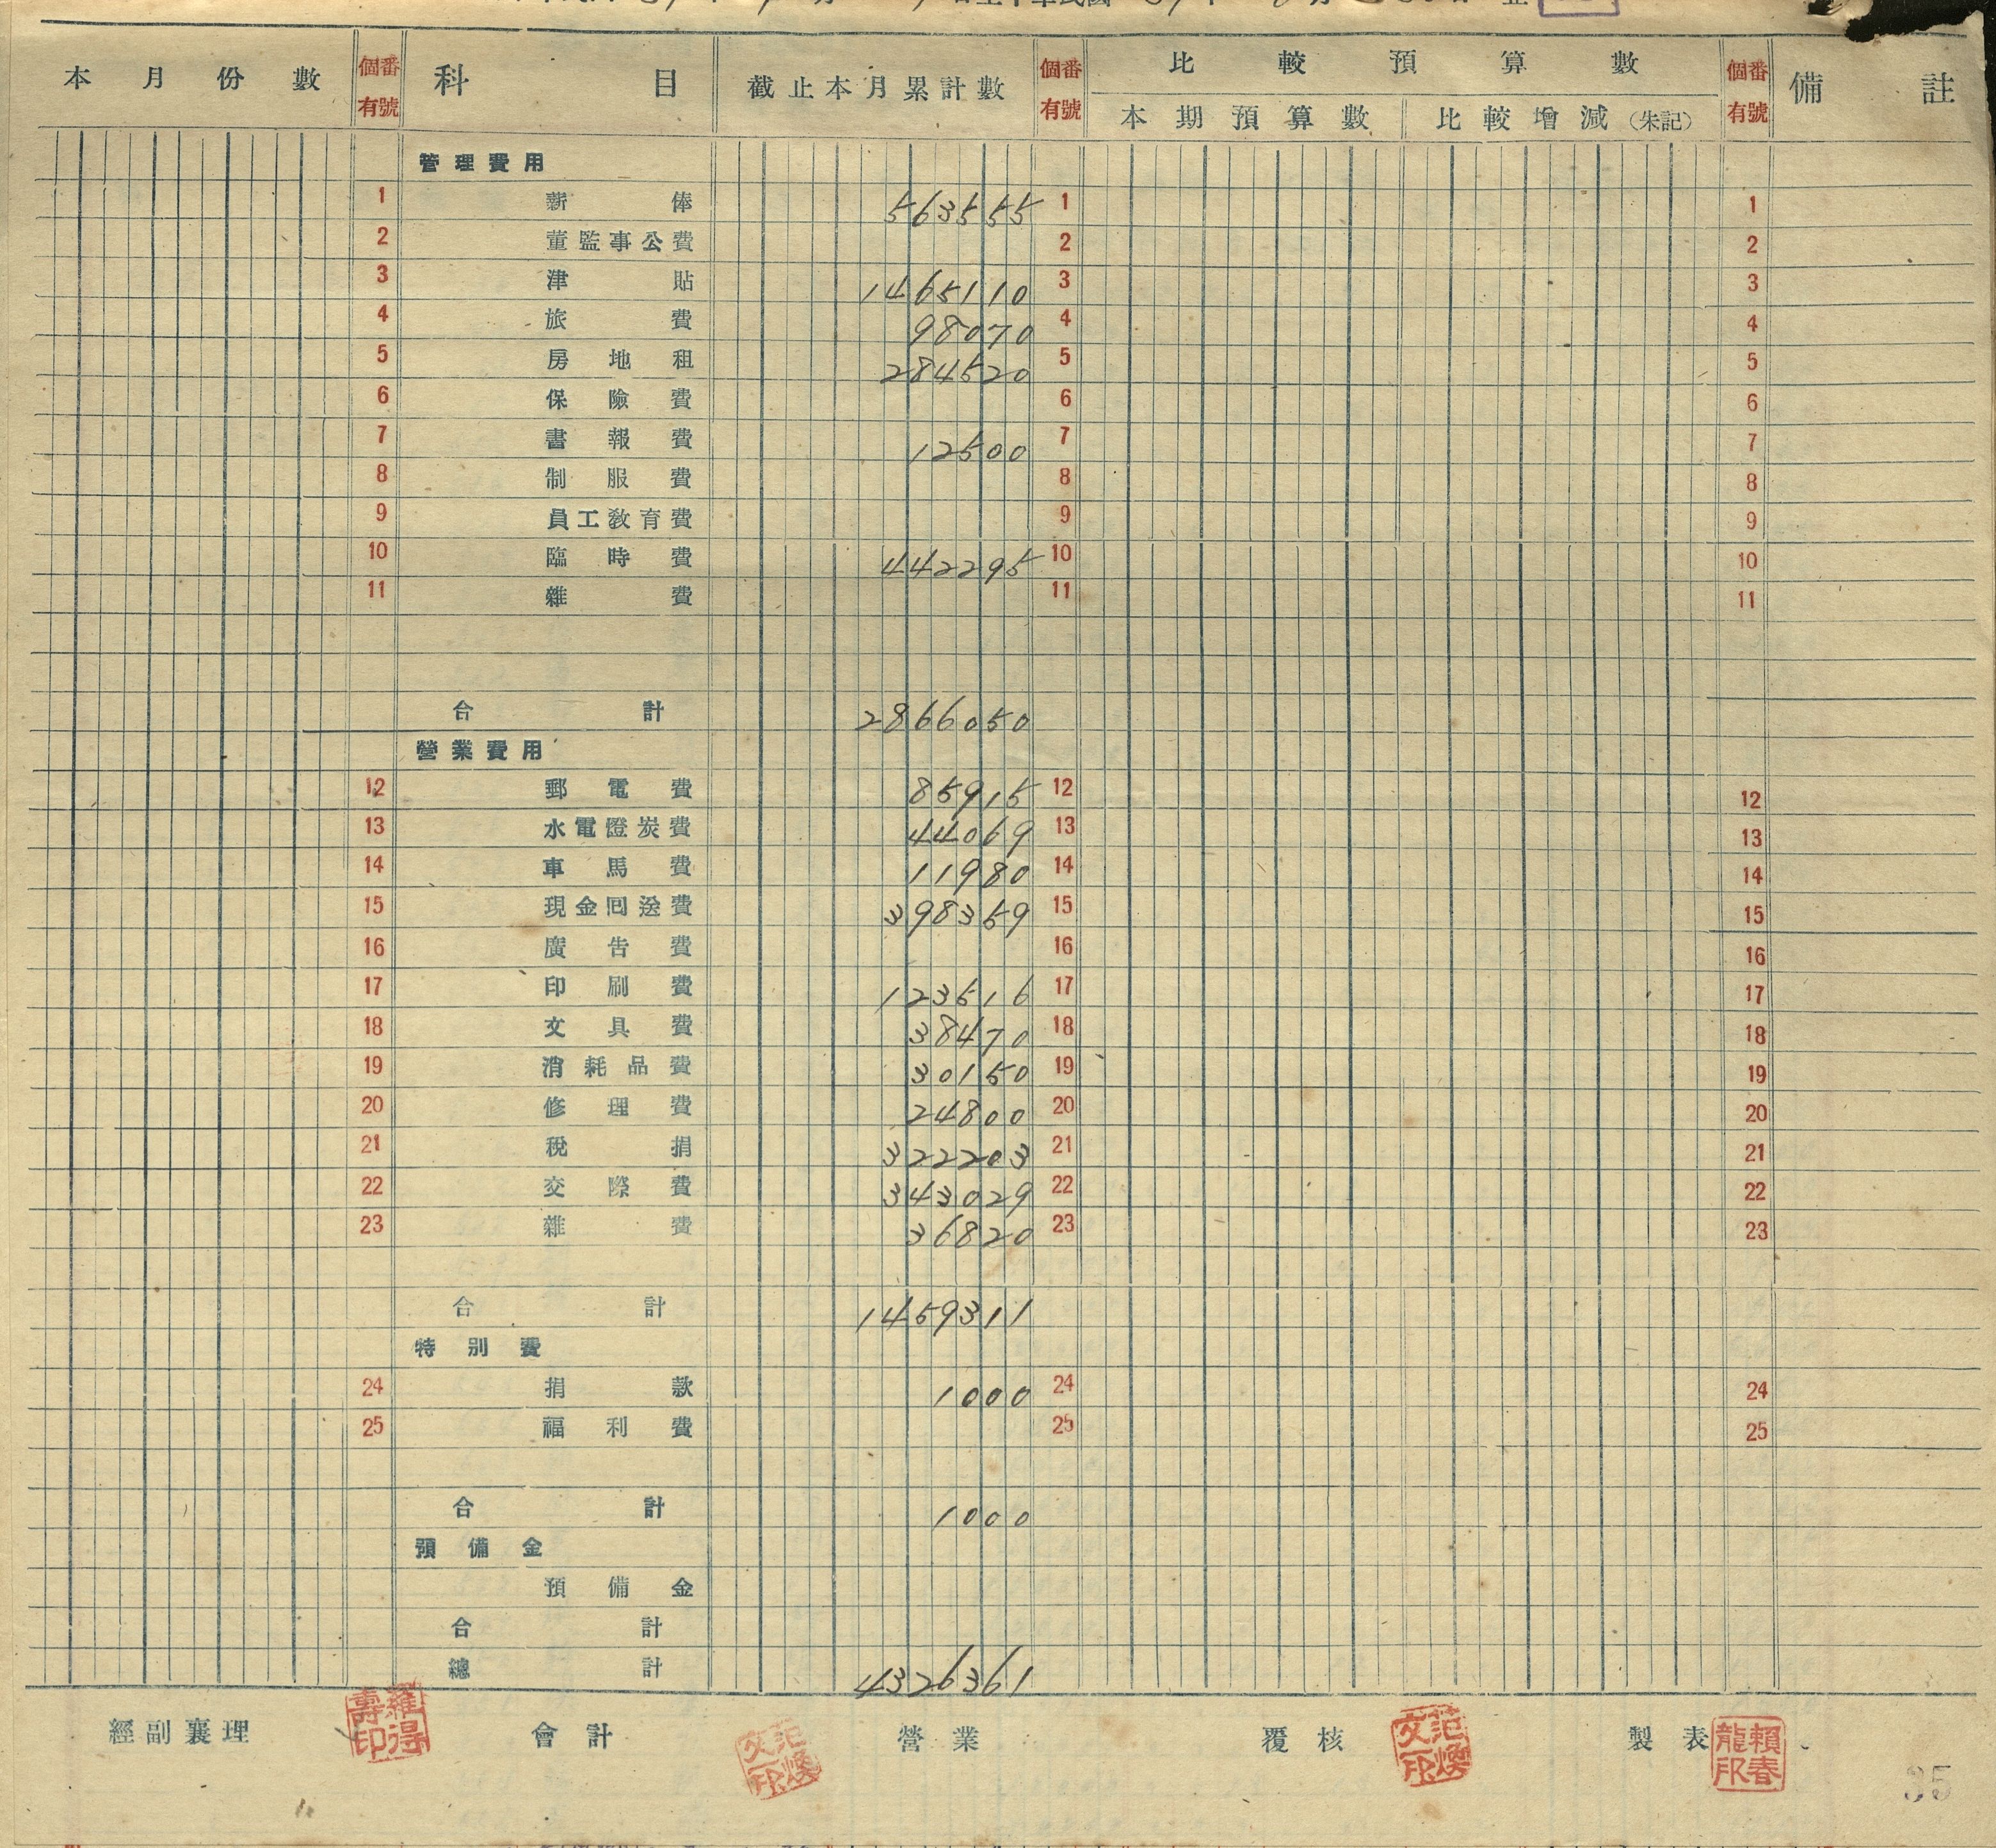 本月份數 個有 番號 科目 截止本月累計數 個有 番號 比較預算數 個有 番號 備註
本期預算數 比較增減(朱記)
管理費用
1 薪俸 563555 1 1
2 董監事公費 2 2
3 津貼 1465110 3 3
4 旅費 98070 4 4
5 房地租 284520 5 5
6 保險費 6 6
7 書報費 12500 7 7
8 制服費 8 8
9 員工教育費 9 9
10 臨時費 442295 10 10
11 雜費 11 11
合計 2866050
營業費用
12 郵電費 85915 12 12
13 水電燈炭費 44069 13 13
14 車馬費 11980 14 14
15 現金回送費 398359 15 15
16 廣告費 16 16
17 印刷費 123516 17 17
18 文具費 38470 18 18
19 消耗品費 30150 19 19
20 修理費 24800 20 20
21 稅捐 322203 21 21
22 交際費 343029 22 22
23 雜費 36820 23 23
合計 1459311
特別費
24 捐款 1000 24 24
25 福利費 25 25
合計 1000
預備金
預備金
合計
總計 4326361
經副襄理 羅得壽印 會計 范煥文印 營業 覆核 范煥文印 製表 賴春龍印
35